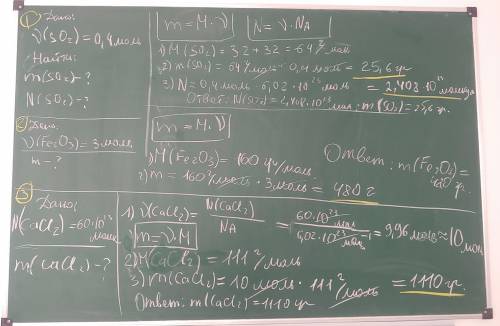 ① Дано:
ν(SO₂) = 0,4 моль
Найти:
m(SO₂) - ?
N(SO₂) - ?
m = M · ν
N = ν · NA
1) M(SO₂) = 32 + 32 = 64 г/моль
2) m(SO₂) = 64 г/моль · 0,4 моль = 25,6 гр
3) N = 0,4 моль · 6,02 · 10²³ моль = 2,408 · 10²³ молекул
Ответ: N(SO₂) = 2,408 · 10²³ мол; m(SO₂) = 25,6 гр.
② Дано:
ν(Fe₂O₃) = 3 моль
m - ?
m = M · ν
1) M(Fe₂O₃) = 160 гр/моль.
2) m = 160 г/моль · 3 моль = 480 г
Ответ: m(Fe₂O₃) =
480 гр.
③ Дано:
N(CaCl₂) = 60 · 10²³
молек
m(CaCl₂) - ?
1) ν(CaCl₂) = N(CaCl₂) / NA = 60 · 10²³ / 6,02 · 10²³ = 9,96 моль ≈ 10 моль
m = ν · M
2) M(CaCl₂) = 111 г/моль
3) m(CaCl₂) = 10 моль · 111 г/моль = 1110 гр.
Ответ: m(CaCl₂) = 1110 гр